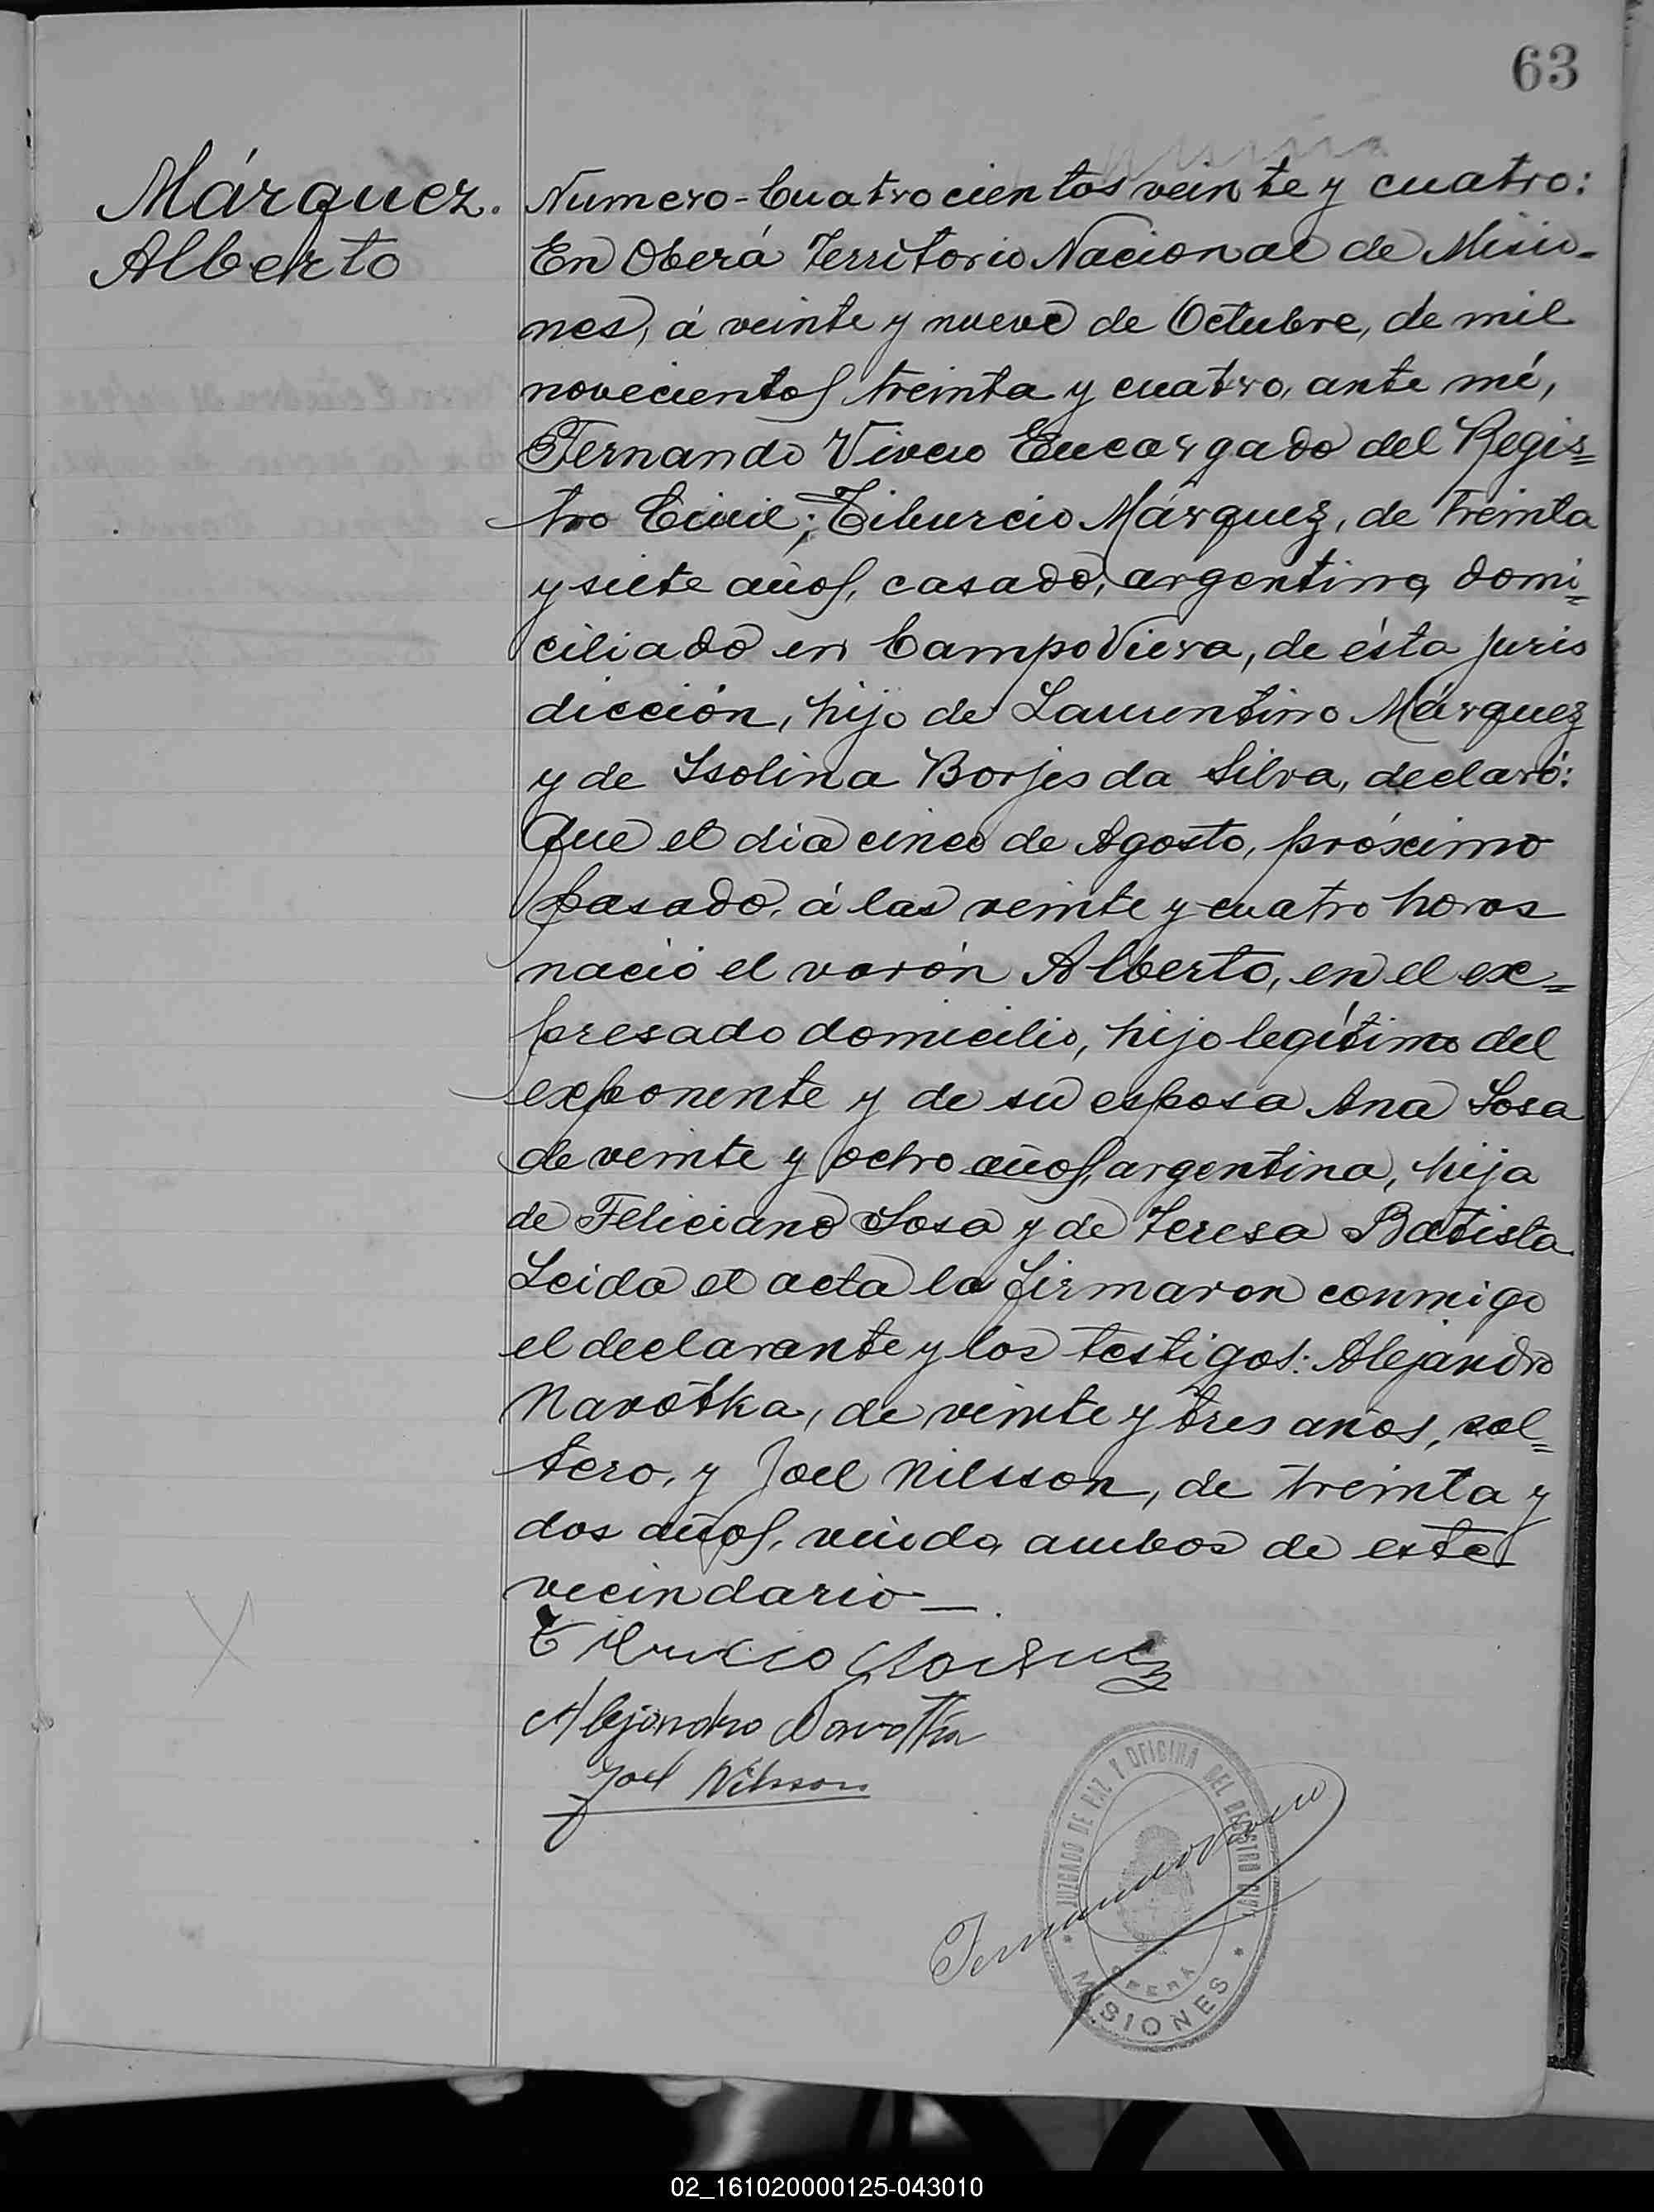 63
Márquez.
Alberto
Numero-Cuatrocientos veinte y cuatro:
En Oberá Territorio Nacional de Misio-
nes, á veinte y nueve de Octubre, de mil
novecientos treinta y cuatro, ante mí,
Fernando Vivero Encargado del Regis=
tro Civil; Tiburcio Márquez, de treinta
y siete años, casado, argentino, domi=
ciliado en Campo Viera, de ésta juris
dicción, hijo de Laurentino Márquez
y de Isolina Borjes da Silva, declaró:
Que el dia cinco de Agosto, próximo
pasado, á las veinte y cuatro horas
nació el varón Alberto, en el ex=
presado domicilio, hijo legítimo del
exponente y de su esposa Ana Sosa
de veinte y ocho años, argentina, hija
de Feliciano Sosa y de Teresa Batista.
Leida el acta la firmaron conmigo
el declarante y los testigos: Alejandro
Navótka, de veinte y tres años, sol=
tero, y Joel Nilsson, de treinta y
dos años, viudo, ambos de este
vecindario—.
Tiburcio Marquez
Alejandro Navotka
Joel Nilsson
JUZGADO DE PAZ Y OFICINA DEL REGISTRO CIVIL
Fernando Vivero
OBERÁ
* MISIONES *
02_161020000125-043010